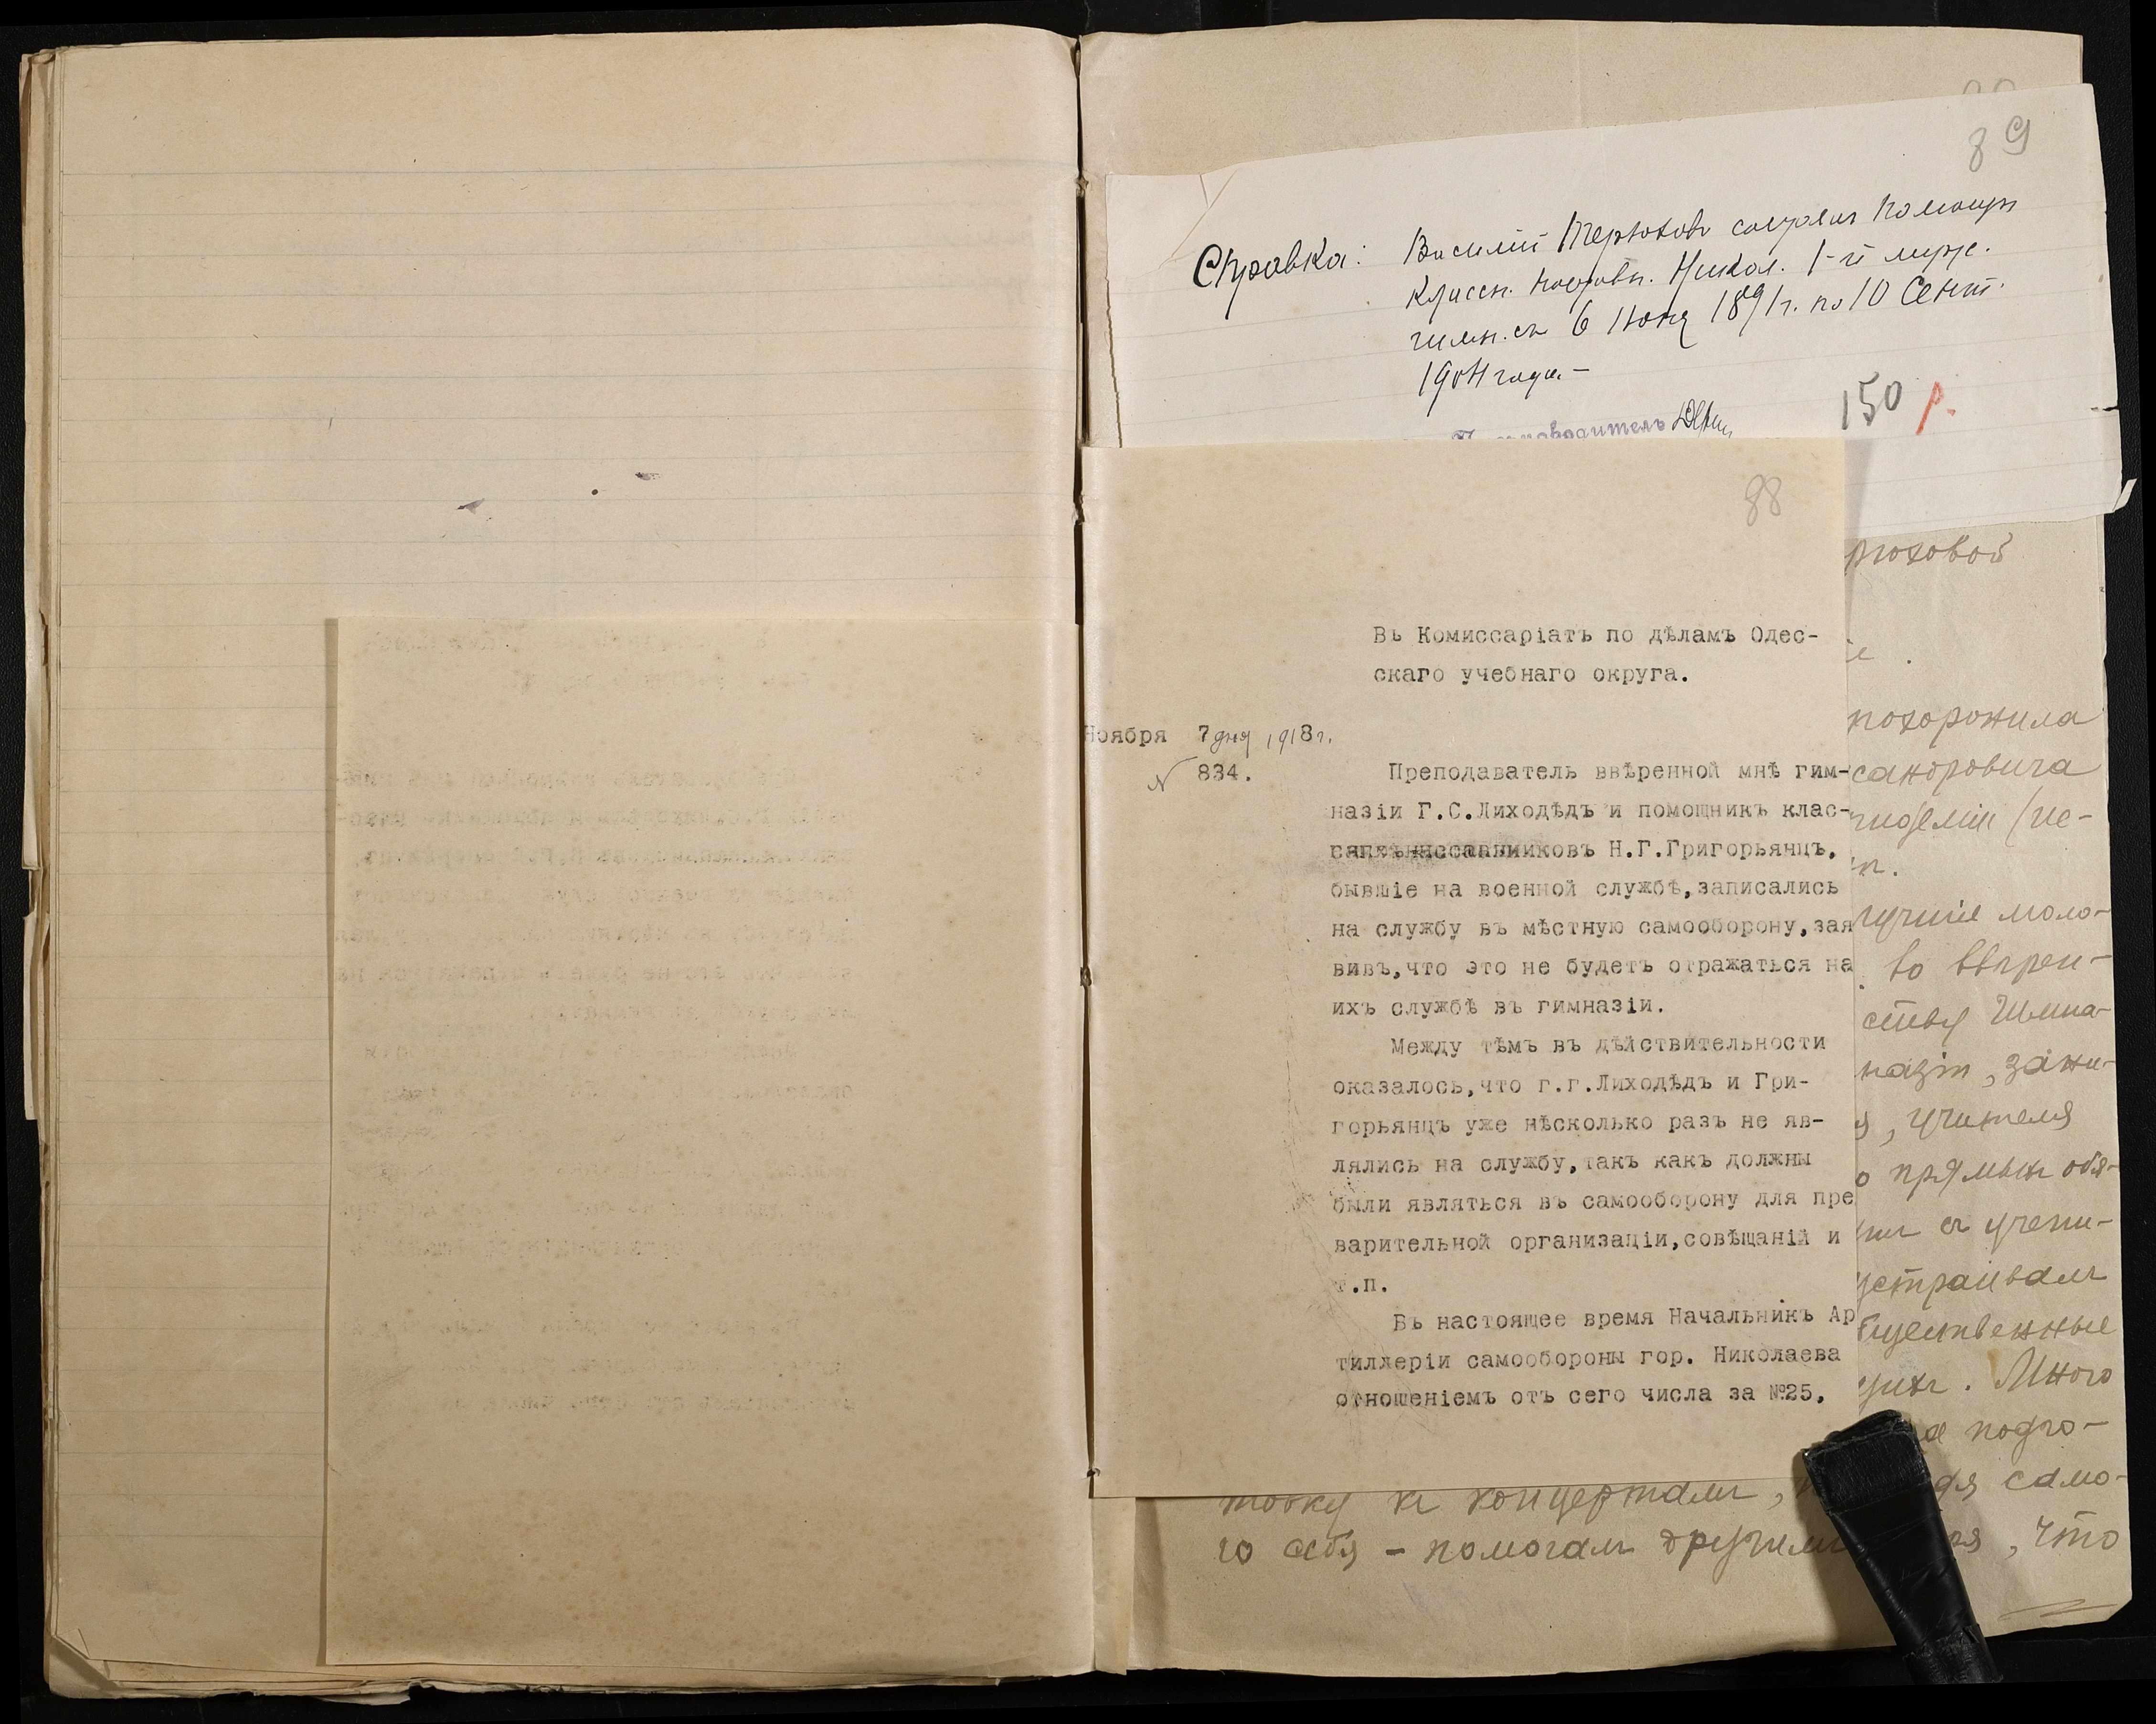 89
Справка: Василий Терюховъ состоялъ Помощн.
Классн. Наставн. Никол. 1-й мужс.
гимн. съ 6 Іюня 1891 г. по 10 Сент.
1904 года. –
150 р.
88
Въ Комиссаріатъ по дѣламъ Одес-
скаго учебнаго округа.
Ноября 7 дня 1918 г.
№ 834.
Преподаватель ввѣренной мнѣ гим-
назіи Г.С.Лиходѣдъ и помощникъ клас-
Н.Г.Григорьянцъ,
бывшіе на военной службѣ,записались
на службу въ мѣстную самооборону,зая
вивъ,что это не будетъ отражаться на
ихъ службѣ въ гимназіи.
Между тѣмъ въ дѣйствительности
оказалось,что г.г.Лиходѣдъ и Гри-
горьянцъ уже нѣсколько разъ не яв-
лялись на службу,такъ какъ должны
были являться въ самооборону для пре
варительной организаціи,совѣщаній и
т.п.
Въ настоящее время Начальникъ Ар
тиллеріи самообороны гор. Николаева
отношеніемъ отъ сего числа за №25,
рюховой
похоронила
сандровича
лучшіе моло-
во ввѣрен-
ству Гимна-
назіи, зани-
я, учителя
о прямыхъ обя-
ми съ учени-
устраивалъ
бщественные
. Много
подго-
товку къ концертамъ, само-
го себя – помогалъ другимъ , что